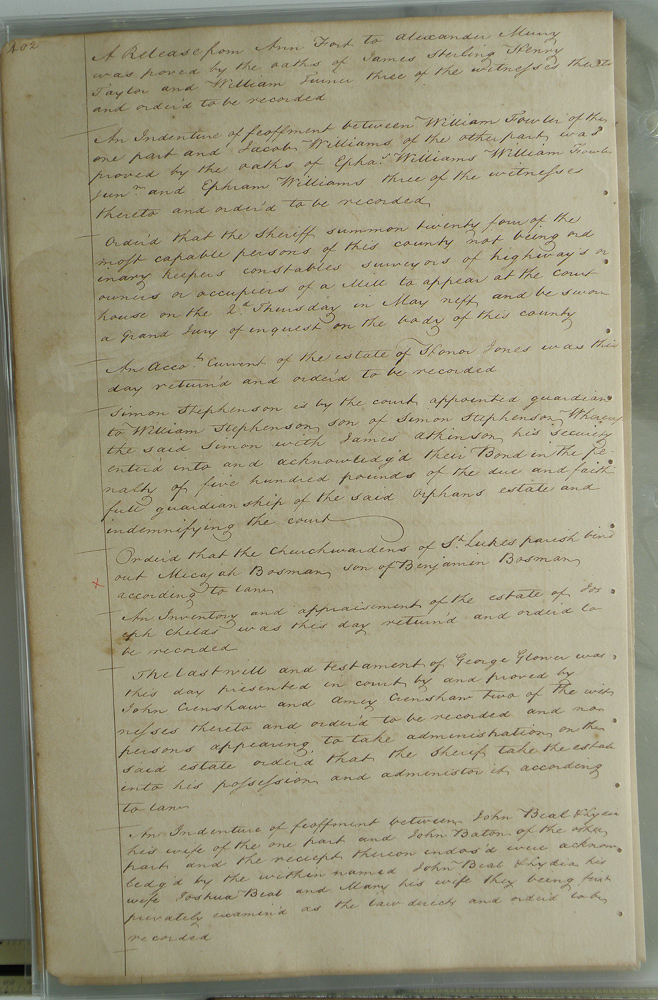 402
A Release from Ann Fort to Alexander Murry
was proved by the oaths of James Sterling Henry
Taylor and William Turner three of the witnesses thereto
and order'd to be recorded
An Indenture of feoffment between William Fowler of the
one part and Jacob Williams of the other part was
proved by the oaths of Epha.s Williams William Fowler
Junr. and Ephram Williams three of the witnesses
thereto and order'd to be recorded
Order'd that the Sheriff summon twenty four of the
most capable persons of this county not being ord
inary keepers constables surveyors of highway's or
owners or occupiers of a Mill to appear at the court
house on the 2d Thursday in May next and be sworn
a Grand Jury of inquest on the body of this county
An Accot. Current of the estate of Honor Jones was this
day return'd and order'd to be recorded
Simon Stephenson is by the court appointed guardian
to William Stephenson son of Simon Stephenson Whereup
the said Simon with James Atkinson his security
enter'd into and acknowledg'd their Bond in the pe-
nalty of five hundred pounds of the due and faith
full guardianship of the said orphans estate and
indemnifying the court
Order'd that the Churchwardens of St. Lukes parish bind
out Micajah Bosman son of Benjamin Bosman
according to law
An Inventory and appraisement of the estate of Jos
eph Childs was this day return'd and order'd to
be recorded
The last will and testament of George Glover was
this day presented in court by and proved by
John Crenshaw and Amey Crenshaw two of the wit
nesses thereto and order'd to be recorded and no
persons appearing to take administration on the
said estate order'd that the Sherif take the estate
into his possession and administor it according
to law
An Indenture of feoffment between John Beal & Lydia
his wife of the one part and John Baton of the other
part and the receipt thereon indors'd were acknow
ledg'd by the within named John Beal & Lydia his
wife Joshua Beal and Mary his wife they being first
privately examin'd as the law directs and order'd to be
recorded